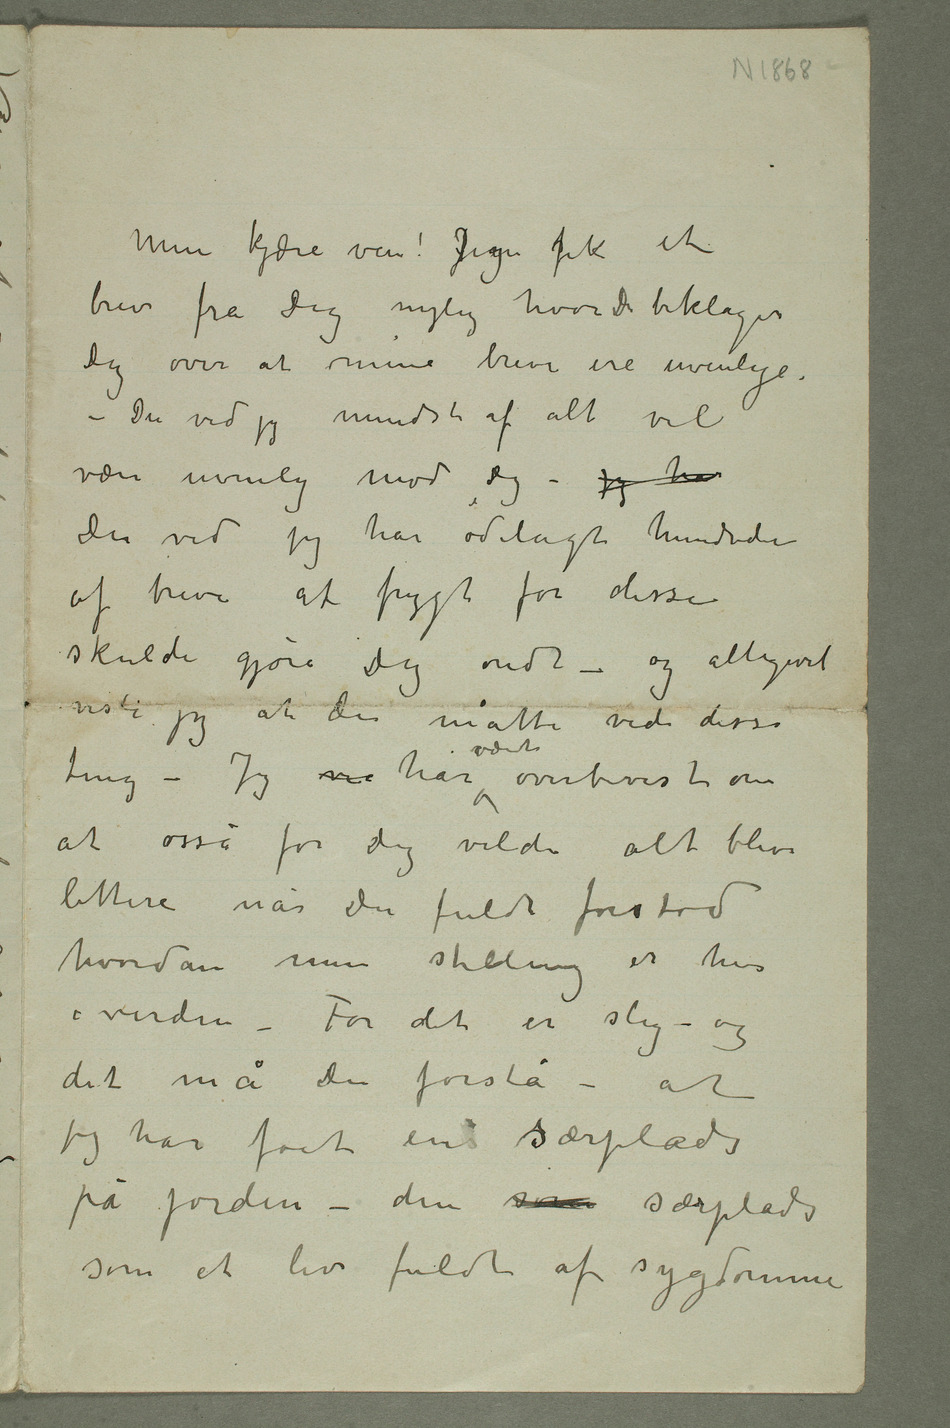 N 1868
Min kjære ven! Jeg fik et
brev fra Dig nylig hvor Du beklager
Dig over at mine breve ere uvenlige.
– Du ved jeg mindst af alt vil
være uvenlig mod Dig – jeg har
Du ved jeg har ødelagt hundreder
af breve af frygt for disse
skulde gjøre Dig ondt – og alligevel
viste jeg at Du måtte vide disse
ting – Jeg har været overbevist om
at osså for Dig vilde alt blive
lettere når Du fuldt forstod
hvordan min stilling er her
i verden – For det er slig – og
det må Du forstå – at
jeg har fåt en særplads
på jorden – den som særplads
som et liv fuldt af sygdomme